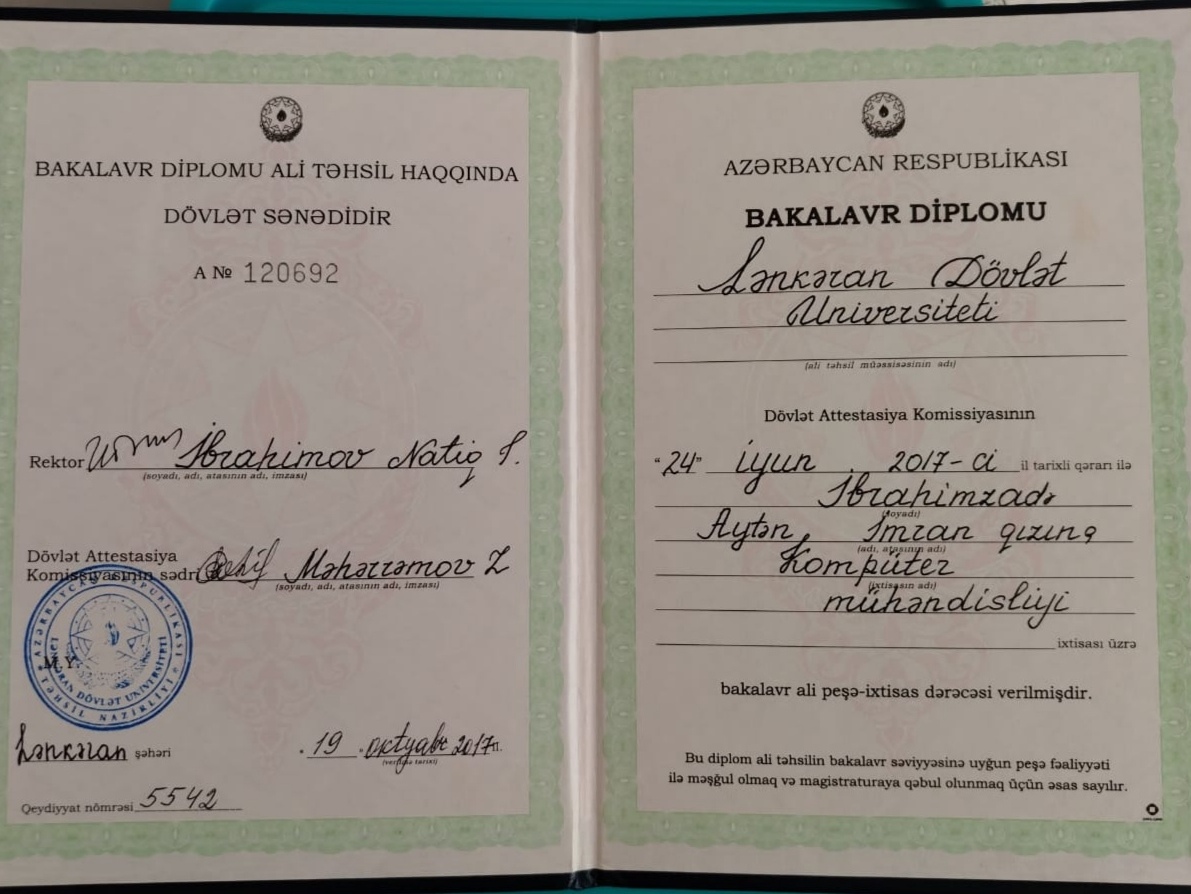 BAKALAVR DİPLOMU ALİ TƏHSİL HAQQINDA
DÖVLƏT SƏNƏDİDİR
A № 120692
Rektor İbrahimov Natiq Ş.
(soyadı, adı, atasının adı, imzası)
Dövlət Attestasiya
Komissiyasının sədri Məhərrəmov Z
(soyadı, adı, atasının adı, imzası)
AZƏRBAYCAN RESPUBLİKASI
TƏHSİL NAZİRLİYİ
LƏNKƏRAN DÖVLƏT UNİVERSİTETİ
M.Y.
Lənkəran şəhəri
19 oktyabr 2017
(verilmə tarixi)
Qeydiyyat nömrəsi 5542
AZƏRBAYCAN RESPUBLİKASI
BAKALAVR DİPLOMU
Lənkəran Dövlət
Universiteti
(ali təhsil müəssisəsinin adı)
Dövlət Attestasiya Komissiyasının
"24" iyun 2017-ci il tarixli qərarı ilə
İbrahimzadə
(soyadı)
Aytən İmran qızına
(adı, atasının adı)
Kompüter
(ixtisasın adı)
mühəndisliyi
ixtisası üzrə
bakalavr ali peşə-ixtisas dərəcəsi verilmişdir.
Bu diplom ali təhsilin bakalavr səviyyəsinə uyğun peşə fəaliyyəti
ilə məşğul olmaq və magistraturaya qəbul olunmaq üçün əsas sayılır.